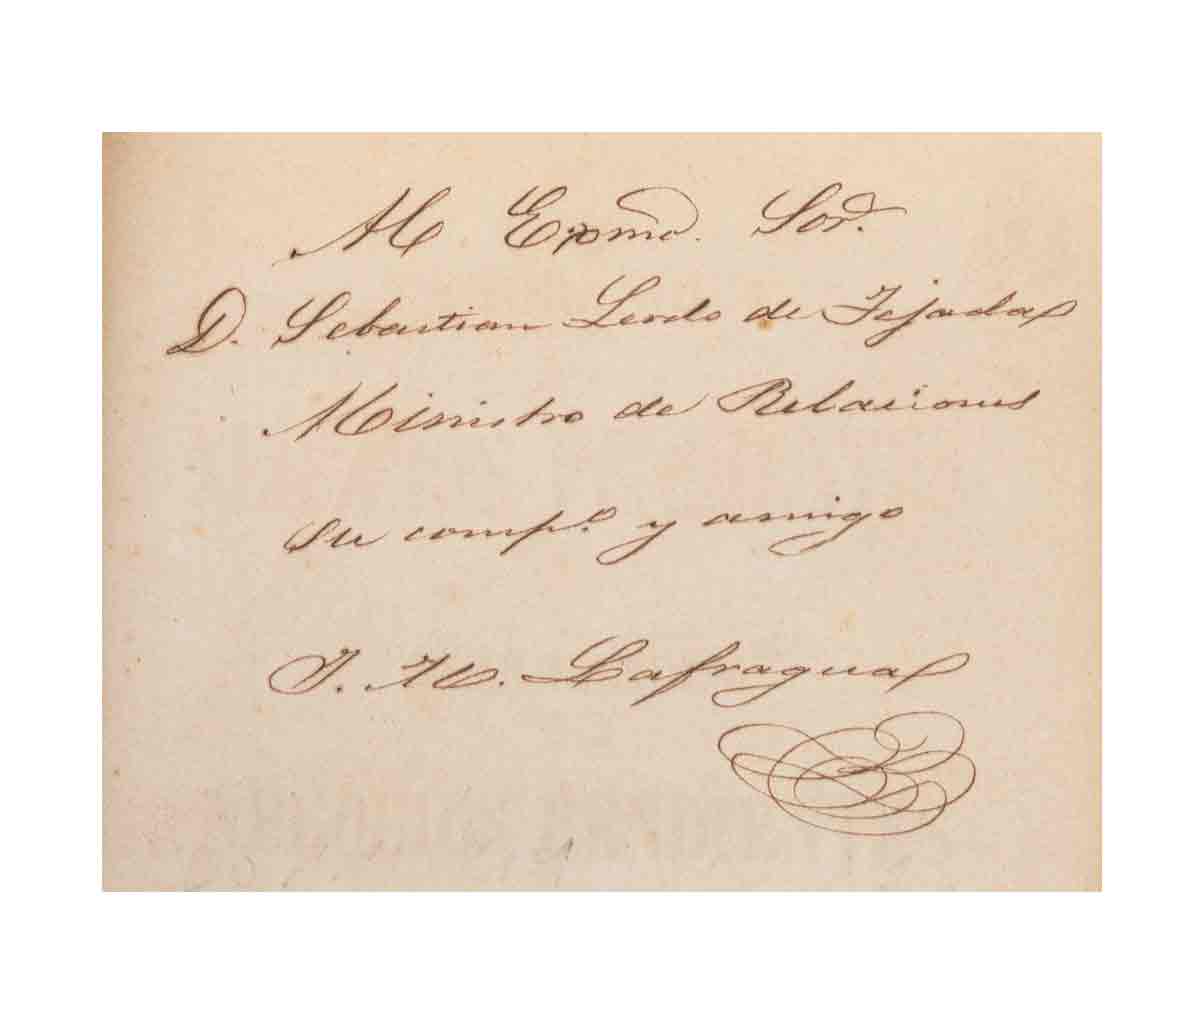 Al Exmo. Sor.
D. Sebastian Lerdo de Tejada
Ministro de Relaciones
su comp.o y amigo
J. M. Lafragua